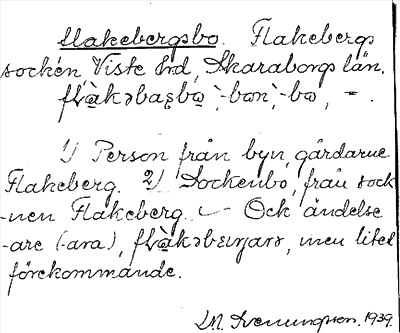 Flakebergsbo. Flakebergs
socken Viste hrd, Skaraborgs län.
flàkəbaʂbo, -bon, -bo, =.
1) Person från byn, gårdarne
Flakeberg. 2) Sockenbo, från sock-
-nen Flakeberg. — Ock ändelse
-are (-ara), flàkəbɛrjarə, men litet
förekommande.
LM. Svenungsson. 1939.